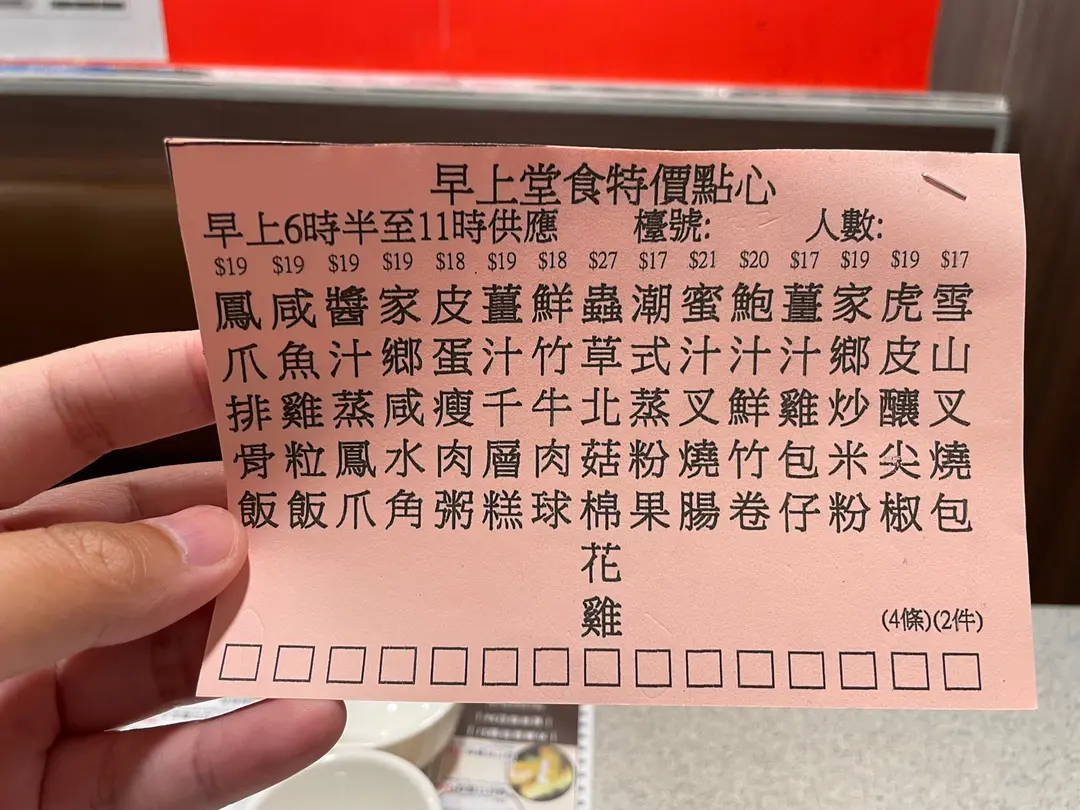 早上堂食特價點心
早上6時半至11時供應 檯號: 人數:
$19 $19 $19 $19 $18 $19 $18 $27 $17 $21 $20 $17 $19 $19 $17
鳳爪排骨飯
咸魚雞粒飯
醬汁蒸鳳爪
家鄉咸水角
皮蛋瘦肉粥
薑汁千層糕
鮮竹牛肉球
蟲草北菇棉花雞
潮式蒸粉果
蜜汁叉燒腸
鮑汁鮮竹卷
薑汁雞包仔
家鄉炒米粉
虎皮釀尖椒
雪山叉燒包
(4條)(2件)